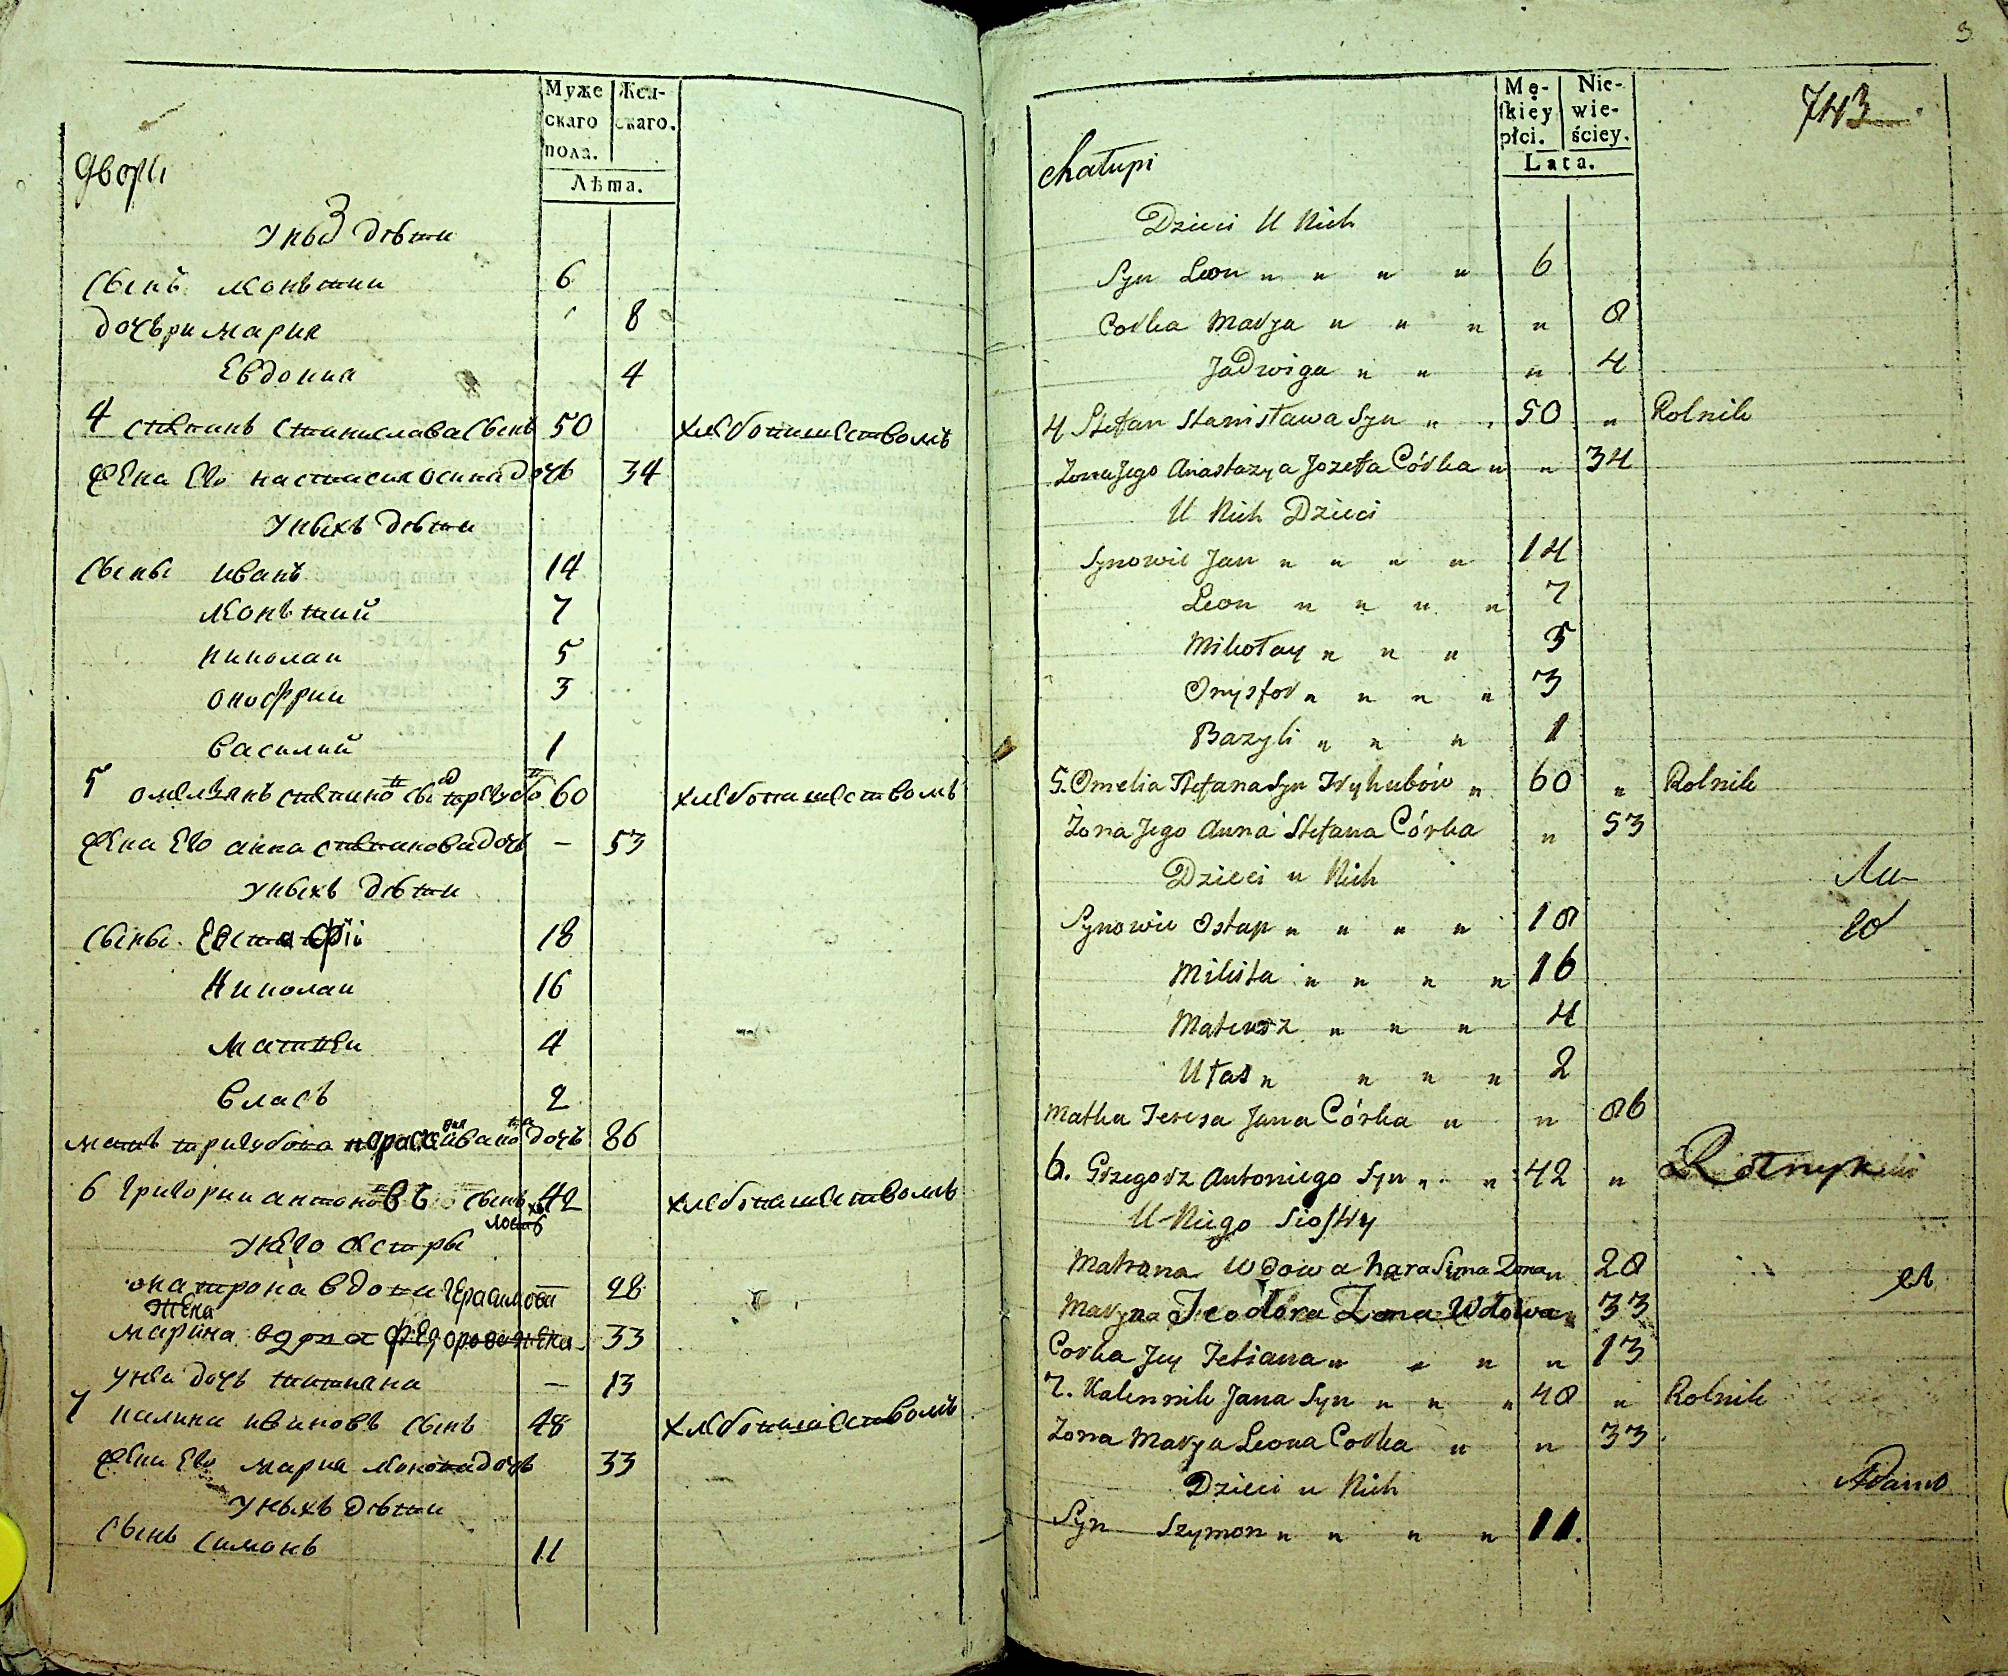 Муже
скаго
пола.
Жен-
скаго.
Лѣта.
дворы
3
У ных дѣти
сынъ леонътии 6
дочьри мария 8
Евдокиа 4
4 степанъ станиславасынъ 50 хлебопашествомъ
жена Его настасия осипадочь 34
Уныхъ дѣти
сыны иванъ 14
леонътий 7
николаи 5
онофрии 3
василий 1
5 омелянъ степано сы 60 хлебопашествомъ
жена Его анна степановадочь — 53
уныхъ дѣти
сыны Евстафій 18
Николаи 16
Матвеи 4
власъ 2
мать тригубова ивано дочь 86
6 Григории антоновъ сынъ 42 хлебопашествомъ
унего сестры
матрона вдова Герасимова 28
жена
марина вдова федорова жена 33
унеи дочь татияна — 13
7 калина ивановъ сынъ 48 хлебопашествомъ
жена Его мария леоновадочь 33
Уныхъ дѣти
сынъ симонъ 11
3
Mę-
skiey
płci.
Nie-
wie-
ściey.
Lata.
743
chałupi
Dzieci U Nich
Syn Leon " " " " 6
Corka Marya " " " " 8
Jadwiga " " " 4
4 Stefan Stanisława Syn " " 50 " Rolnik
Zona Jego Anastazya Jozefa Córka " " 34
U Nich Dzieci
Synowie Jan " " " " 14
Leon " " " " 7
Mikołay " " " 5
Onysfor " " " " 3
Bazyli " " " 1
5. Omelia Stefana Syn Tryhubów " 60 " Rolnik
Zona Jego Anna Stefana Córka " 53
Dzieci u Nich
Synowie Ostap " " " " 18
Mikita " " " " 16
Mateusz " " " 4
Ułas " " " " 2
Matka Teresa Jana Córka " " 86
6. Grzegorz Antoniego Syn " " 42 " Rolnyk
U Niego Siostry
Matrona Wdowa harasima Zona " 28
Maryna Teodora Zona Wdowa " 33
Corka Jey Tetiana " " " " 13
7. Kalennik Jana Syn " " " 48 " Rolnik
Zona Marya Leona Corka " " 33
Dzieci u Nich
Adamo
Syn Szymon " " " " 11.